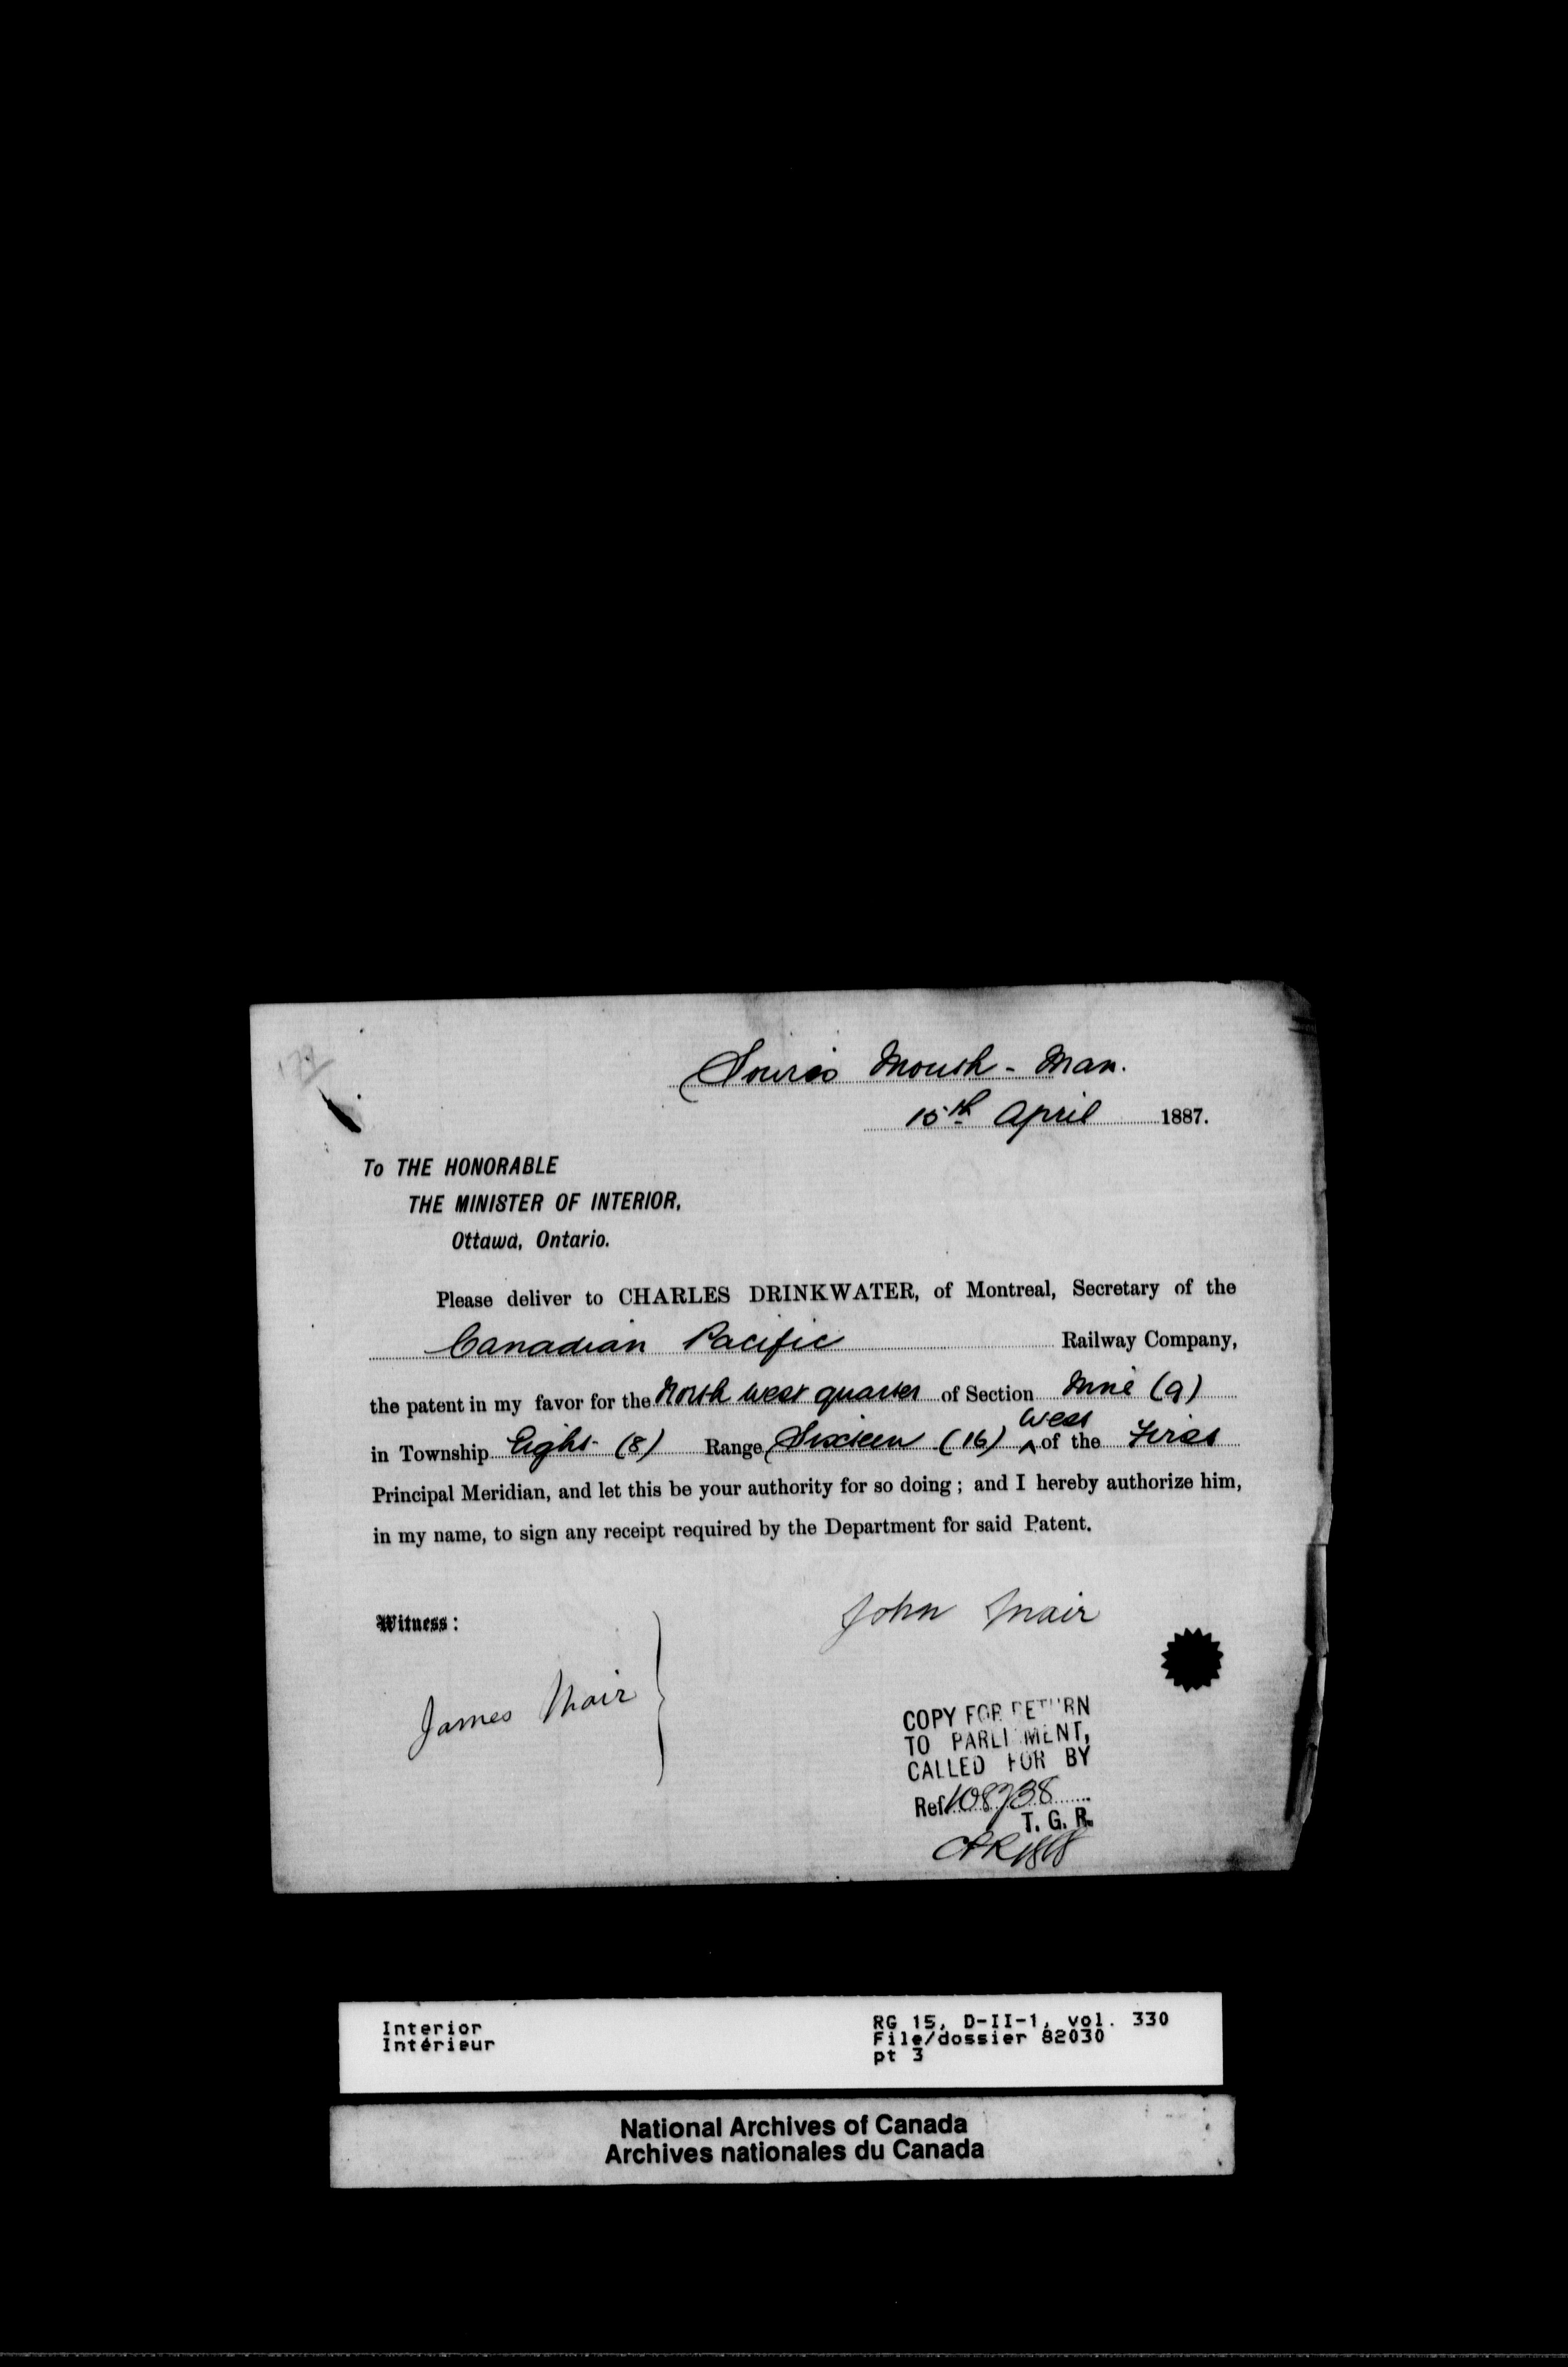 Souris Mouth - Man.
15th April 1887.
To THE HONORABLE
THE MINISTER OF INTERIOR,
Ottawa, Ontario.
Please deliver to CHARLES DRINKWATER, of Montreal, Secretary of the
Canadian Pacific Railway Company,
the patent in my favor for the North west quarter of Section Nine (9)
in Township Eight (8) Range Sixteen (16) West of the First
Principal Meridian, and let this be your authority for so doing ; and I hereby authorize him,
in my name, to sign any receipt required by the Department for said Patent.
John Mair
Witness :
James Mair
COPY FOR RETURN
TO PARLIAMENT,
CALLED FOR BY
Ref. 108738
T. G. R.
Interior
Intérieur
RG 15, D-II-1, vol. 330
File/dossier 82030
pt 3
National Archives of Canada
Archives nationales du Canada